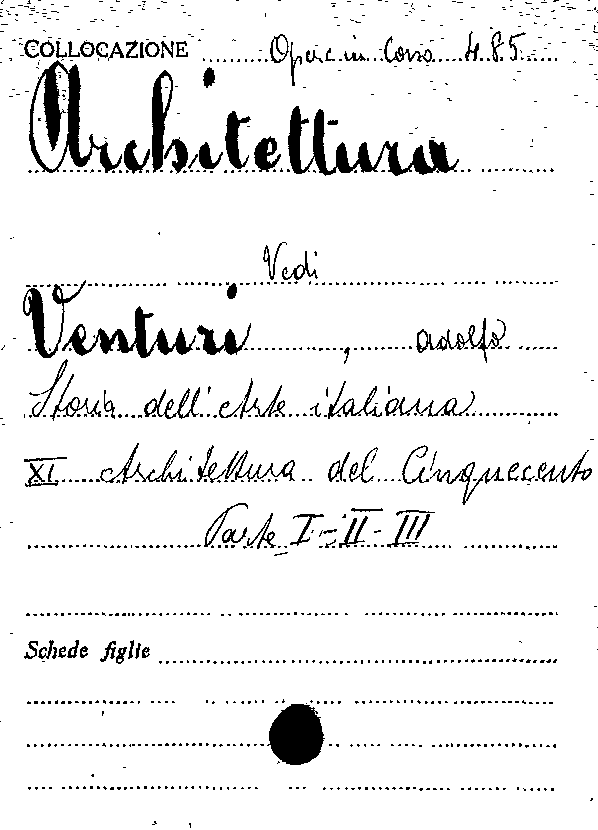 COLLOCAZIONE Opere in Corso 485
Architettura
Vedi
Venturi, Adolfo
Storia dell'Arte italiana
XI Architettura del Cinquecento
Parte I-II-III
Schede figlie